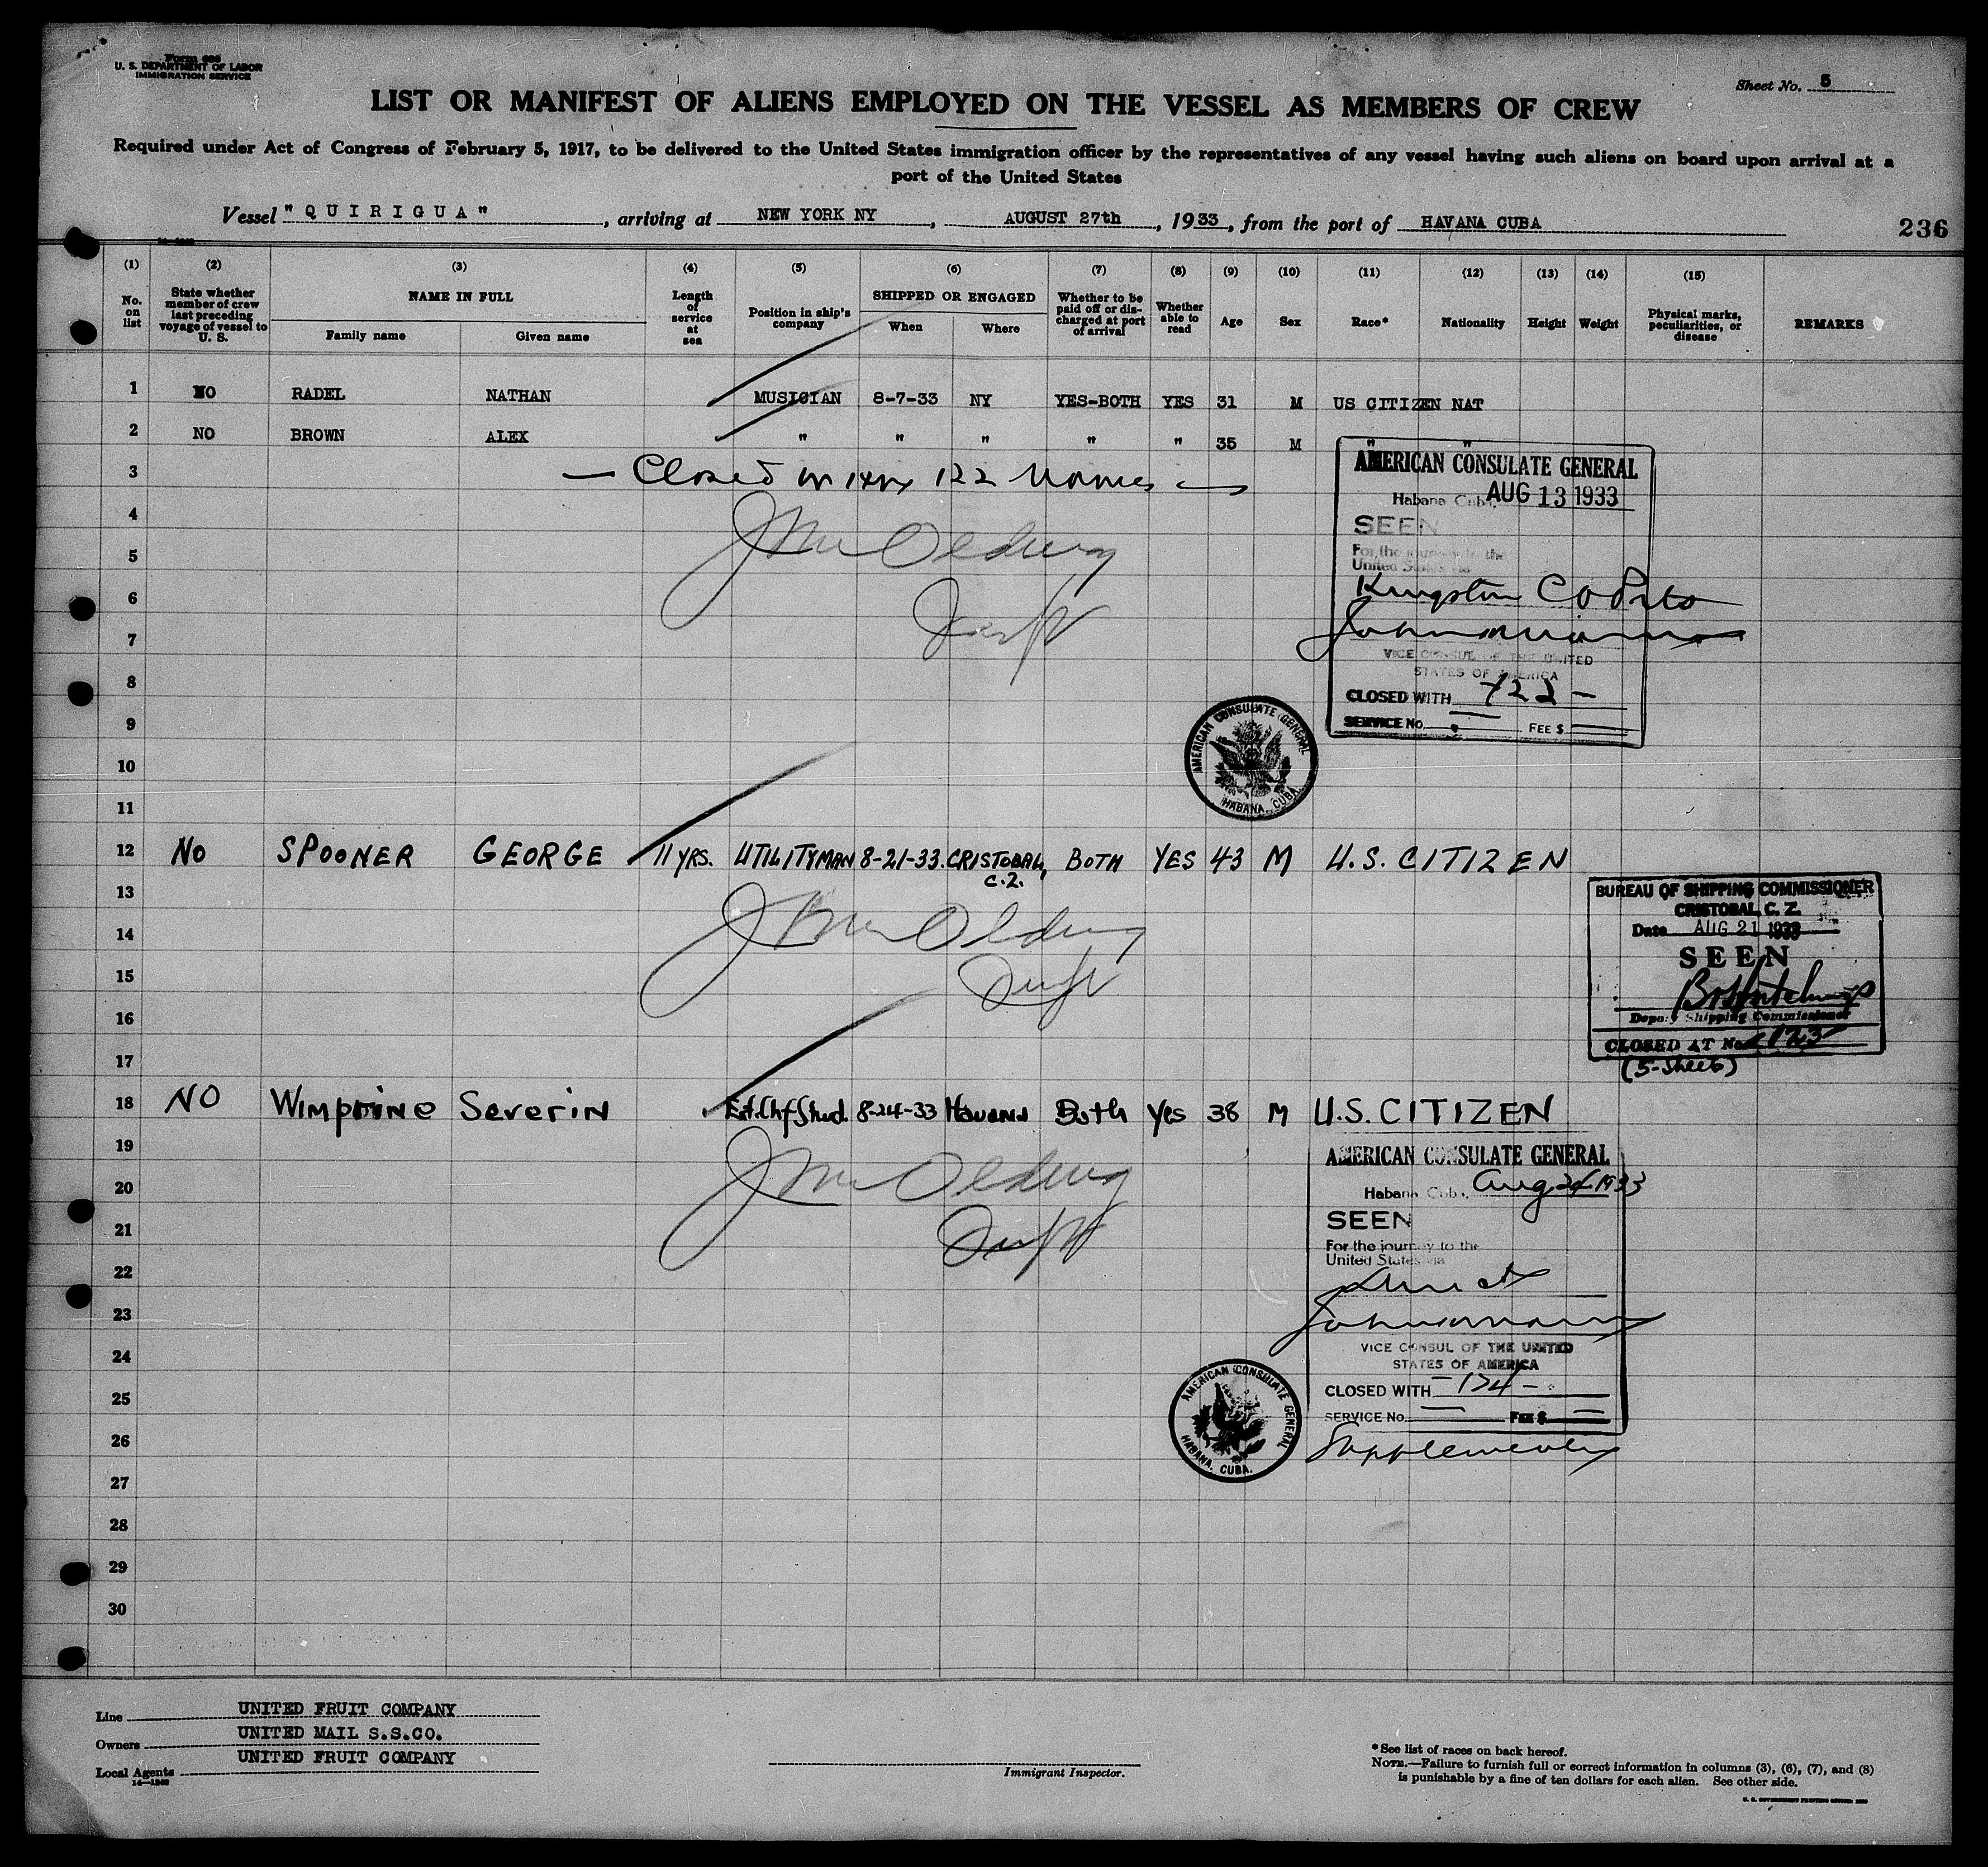 Form 689
U. S. DEPARTMENT OF LABOR
IMMIGRATION SERVICE
Sheet No. 5
LIST OR MANIFEST OF ALIENS EMPLOYED ON THE VESSEL AS MEMBERS OF CREW
Required under Act of Congress of February 5, 1917, to be delivered to the United States immigration officer by the representatives of any vessel having such aliens on board upon arrival at a
port of the United States
Vessel "QUIRIGUA", arriving at NEW YORK NY, AUGUST 27th, 1933, from the port of HAVANA CUBA
236
(1) (2) (3) (4) (5) (6) (7) (8) (9) (10) (11) (12) (13) (14) (15)
No. on list
State whether member of crew last preceding voyage of vessel to U. S.
NAME IN FULL
Family name
Given name
Length of service at sea
Position in ship's company
SHIPPED OR ENGAGED
When
Where
Whether to be paid off or discharged at port of arrival
Whether able to read
Age
Sex
Race*
Nationality
Height
Weight
Physical marks, peculiarities, or disease
REMARKS
1 NO RADEL NATHAN MUSICIAN 8-7-33 NY YES-BOTH YES 31 M US CITIZEN NAT
2 NO BROWN ALEX " " " " " 35 M " "
3 — Closed 122 Names —
4
5
6
7
8
9
10
11
AMERICAN CONSULATE GENERAL
Habana Cuba, AUG 13 1933
SEEN
For the journey to the
United States via
Kingston
VICE CONSUL OF THE UNITED
STATES OF AMERICA
CLOSED WITH 122 —
SERVICE No. FEE $
AMERICAN CONSULATE GENERAL
HABANA, CUBA.
12 NO SPOONER GEORGE 11 YRS. UTILITYMAN 8-21-33. CRISTOBAL, C.Z. BOTH YES 43 M U.S. CITIZEN
13
14
15
16
17
BUREAU OF SHIPPING COMMISSIONER
CRISTOBAL, C. Z.
Date AUG 21 1933
SEEN
Deputy Shipping Commissioner
CLOSED AT No. 123
(5-Sheets)
18 NO Wimprine Severin Ext.Chf.Stwd. 8-24-33 Havana Both Yes 38 M U.S. CITIZEN
19
20
21
22
23
24
25
26
27
28
29
30
AMERICAN CONSULATE GENERAL
Habana Cuba, Aug 24 1933
SEEN
For the journey to the
United States via
Direct
VICE CONSUL OF THE UNITED
STATES OF AMERICA
CLOSED WITH — 124 —
SERVICE No. FEE $
Supplementary
AMERICAN CONSULATE GENERAL
HABANA, CUBA.
Line UNITED FRUIT COMPANY
Owners UNITED MAIL S.S.CO.
Local Agents UNITED FRUIT COMPANY
14—1240
Immigrant Inspector.
*See list of races on back hereof.
NOTE.—Failure to furnish full or correct information in columns (3), (6), (7), and (8)
is punishable by a fine of ten dollars for each alien. See other side.